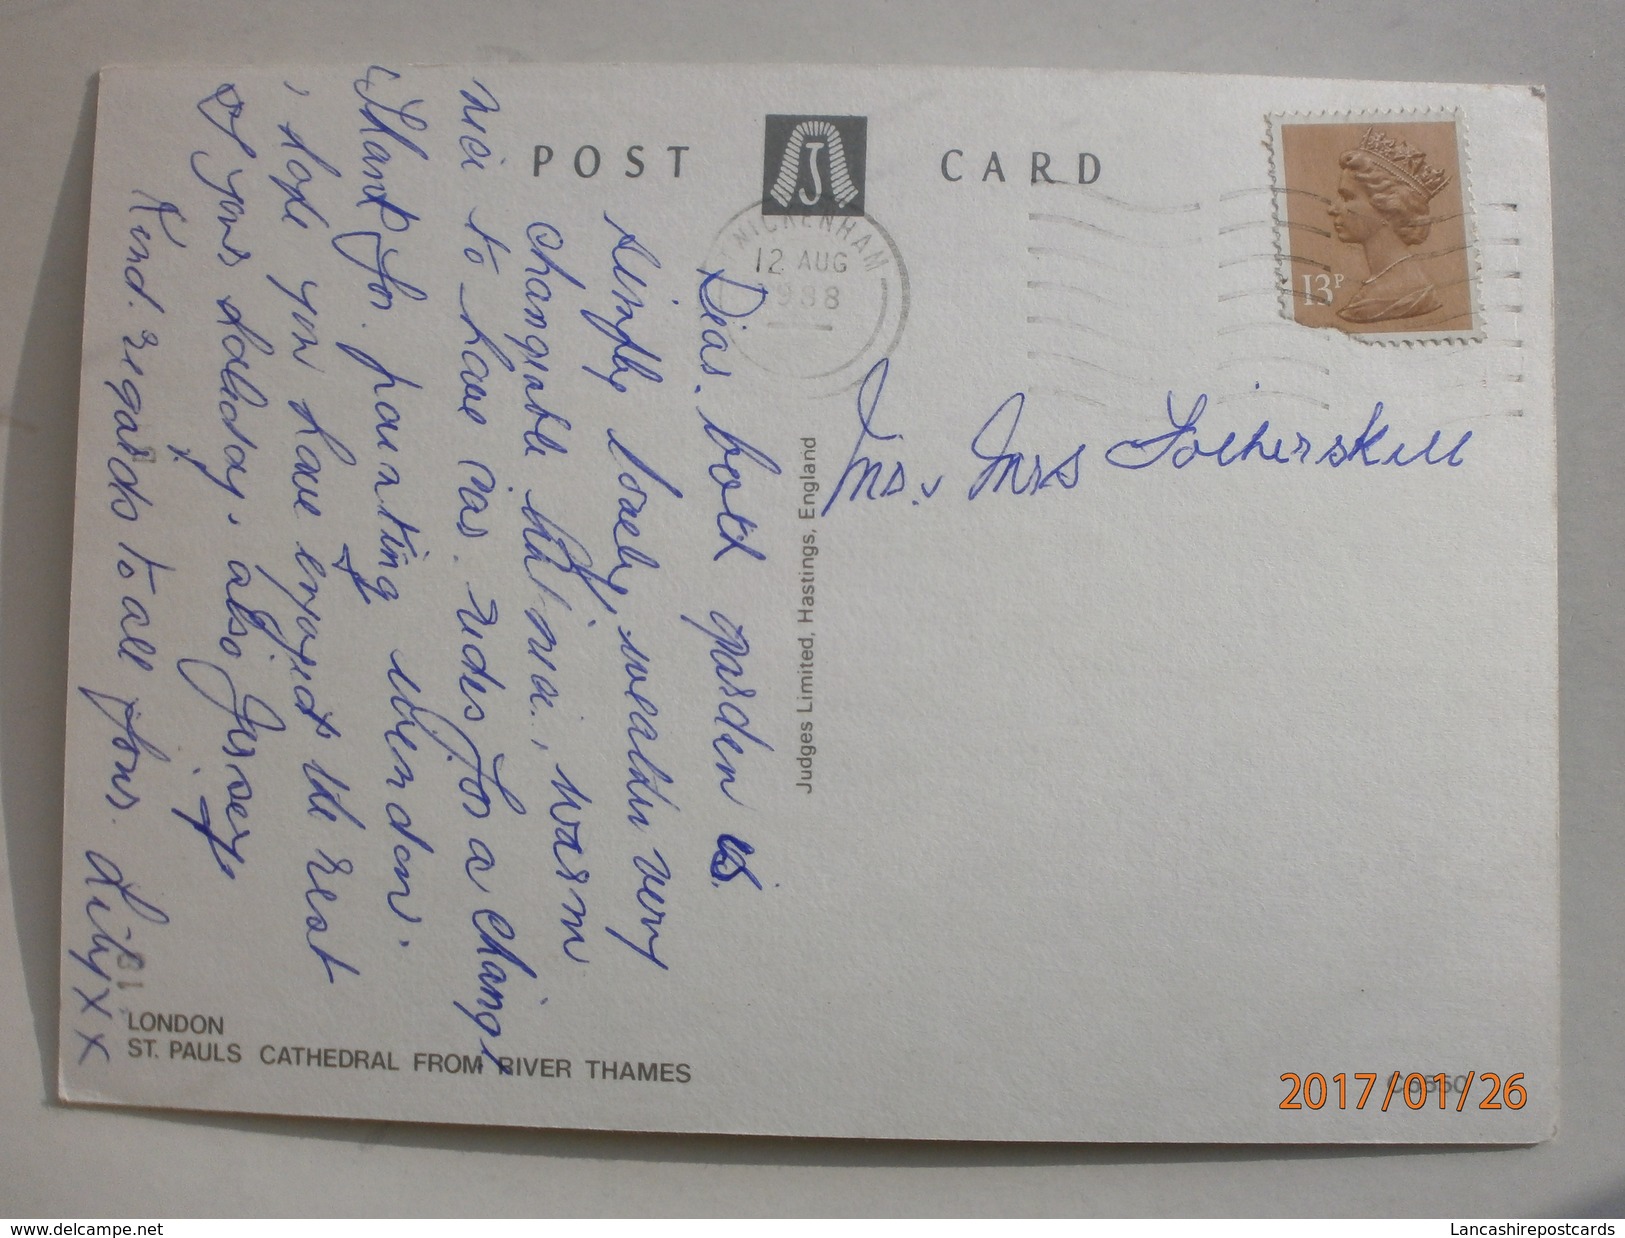 POST CARD
J
TWICKENHAM
12 AUG
1988
13P
Dear both garden is
simply lovely, weather very
changable but nice, warm
nice to have car rides for a change
Thanks for painting wendon.
I hope you have enjoyed the rest
of your holiday, also Jersey
Kind regards to all yours. Lily x x
Mr. Mrs Fotherskill
Judges Limited, Hastings, England
LONDON
ST. PAULS CATHEDRAL FROM RIVER THAMES
2017/01/26
delcampe.net
Lancashirepostcards